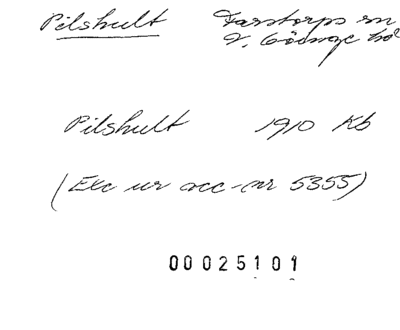 Pilshult Farstorps sn
V. Göinge hd
Pilshult 1910 Kb
(Exc ur acc-nr 5355)
00025101